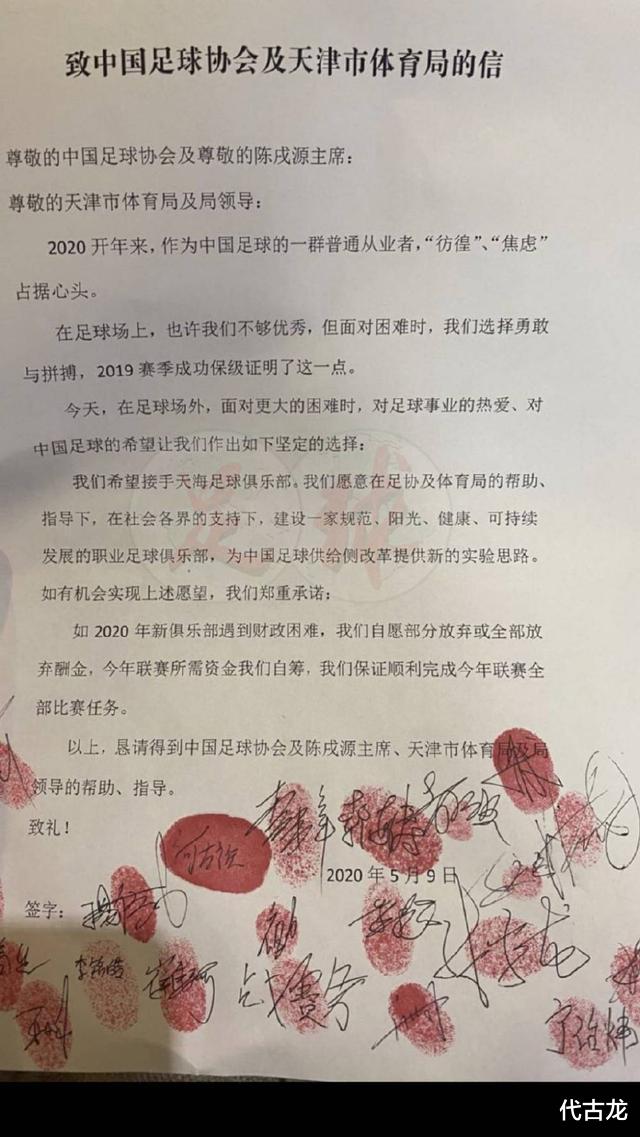 致中国足球协会及天津市体育局的信
尊敬的中国足球协会及尊敬的陈戌源主席：
尊敬的天津市体育局及局领导：
2020 开年来，作为中国足球的一群普通从业者，“彷徨”、“焦虑”
占据心头。
在足球场上，也许我们不够优秀，但面对困难时，我们选择勇敢
与拼搏，2019 赛季成功保级证明了这一点。
今天，在足球场外，面对更大的困难时，对足球事业的热爱、对
中国足球的希望让我们作出如下坚定的选择：
我们希望接手天海足球俱乐部。我们愿意在足协及体育局的帮助、
指导下，在社会各界的支持下，建设一家规范、阳光、健康、可持续
发展的职业足球俱乐部，为中国足球供给侧改革提供新的实验思路。
如有机会实现上述愿望，我们郑重承诺：
如 2020 年新俱乐部遇到财政困难，我们自愿部分放弃或全部放
弃酬金，今年联赛所需资金我们自筹，我们保证顺利完成今年联赛全
部比赛任务。
以上，恳请得到中国足球协会及陈戌源主席、天津市体育局及局
领导的帮助、指导。
致礼！
2020 年 5 月 9 日
签字：
足球
代古龙